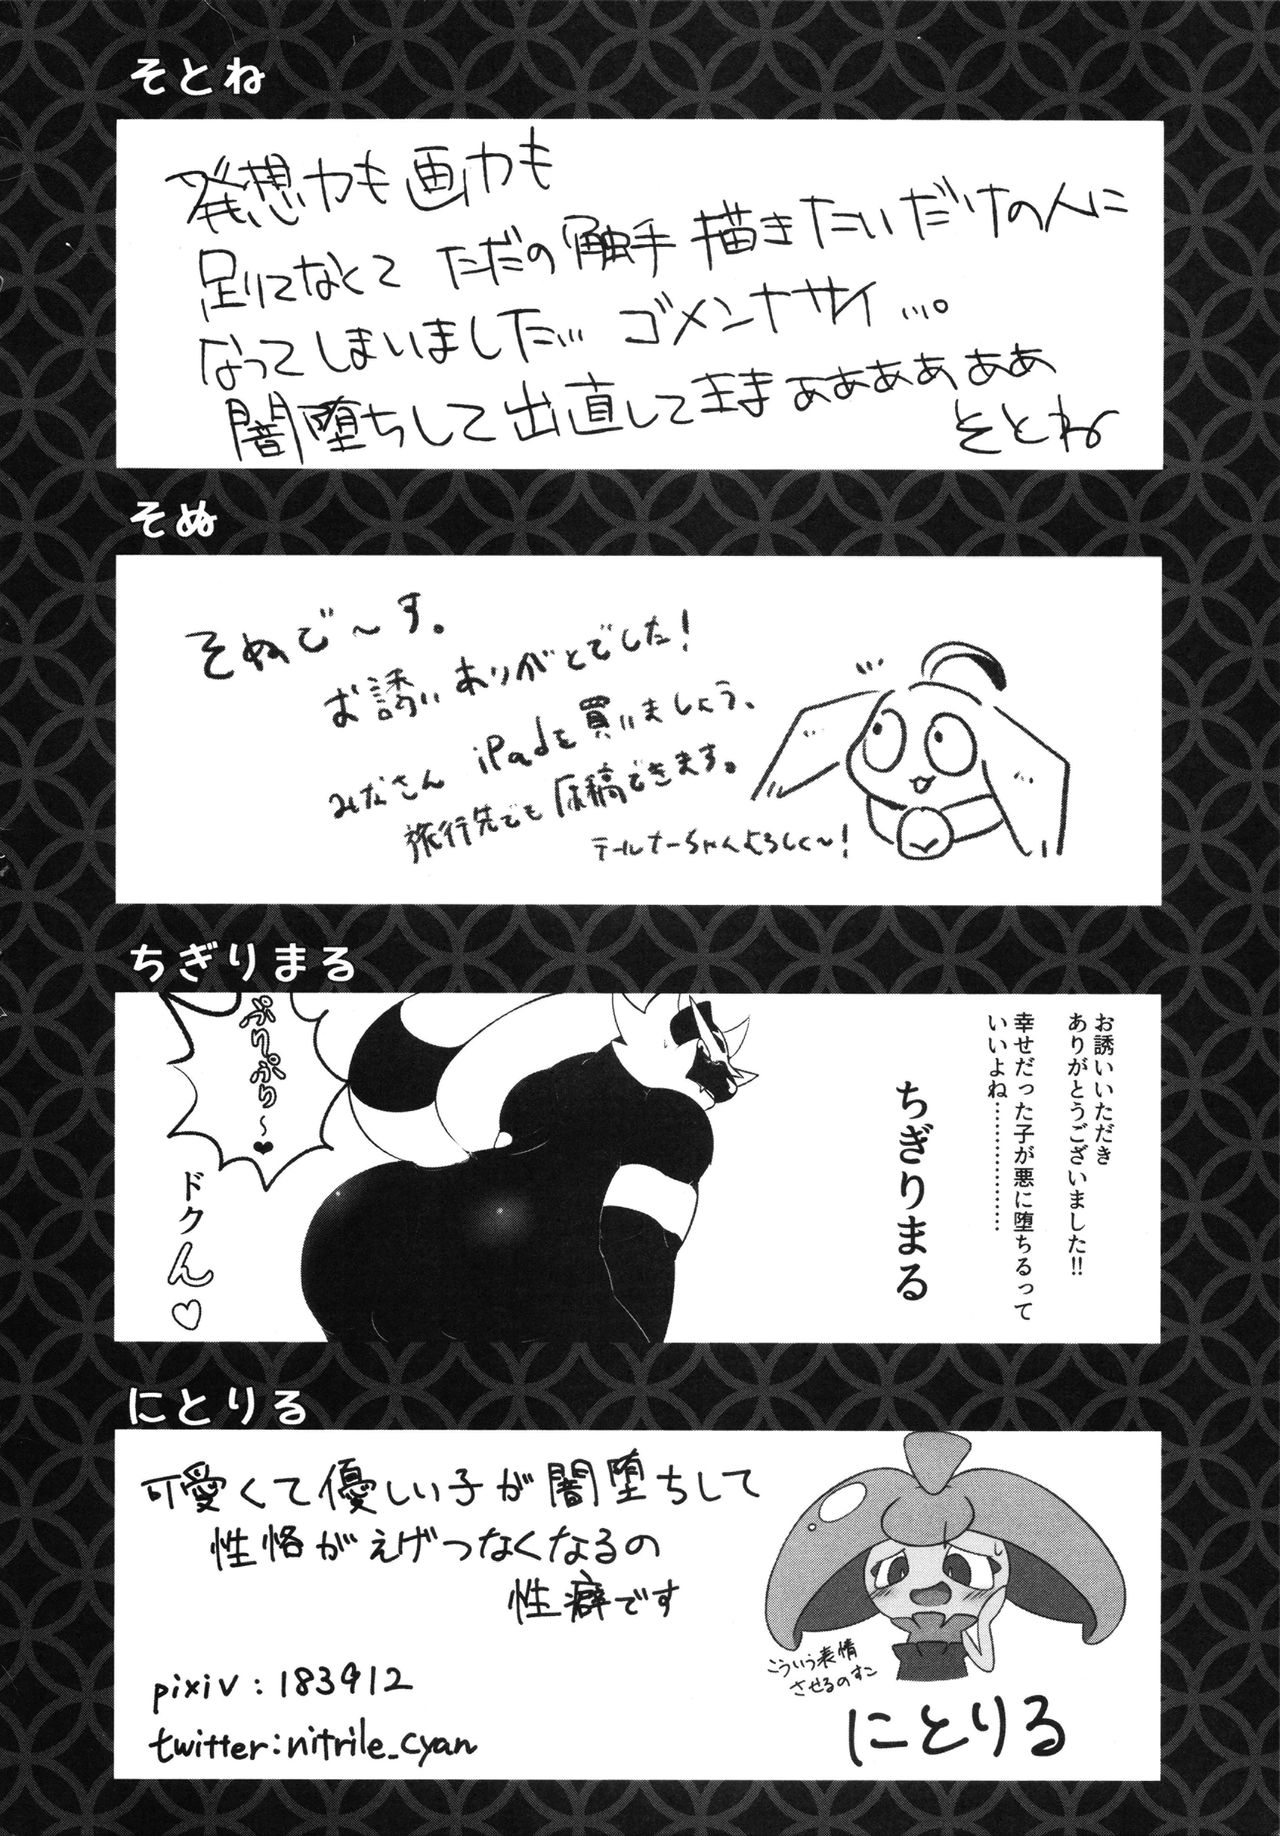 そとね
発想力も画力も
足りてなくて ただの触手描きたいだけの人に
なってしまいました… ゴメンナサイ…。
闇堕ちして出直してきまぁぁぁぁぁぁ
そとね
そぬ
そぬで～す。
お誘いありがとでした!
みなさん iPadを買いましょう、
旅行先でも原稿できます。
テールナーちゃんよろしく～!
ちぎりまる
お誘いいただき
ありがとうございました!!
幸せだった子が悪に堕ちるって
いいよね………………
ちぎりまる
ぷりぷり～♥
ドクん♡
にとりる
可愛くて優しい子が闇堕ちして
性格がえげつなくなるの
性癖です
pixiv:183912
twitter:nitrile_cyan
こういう表情
させるのすこ
にとりる